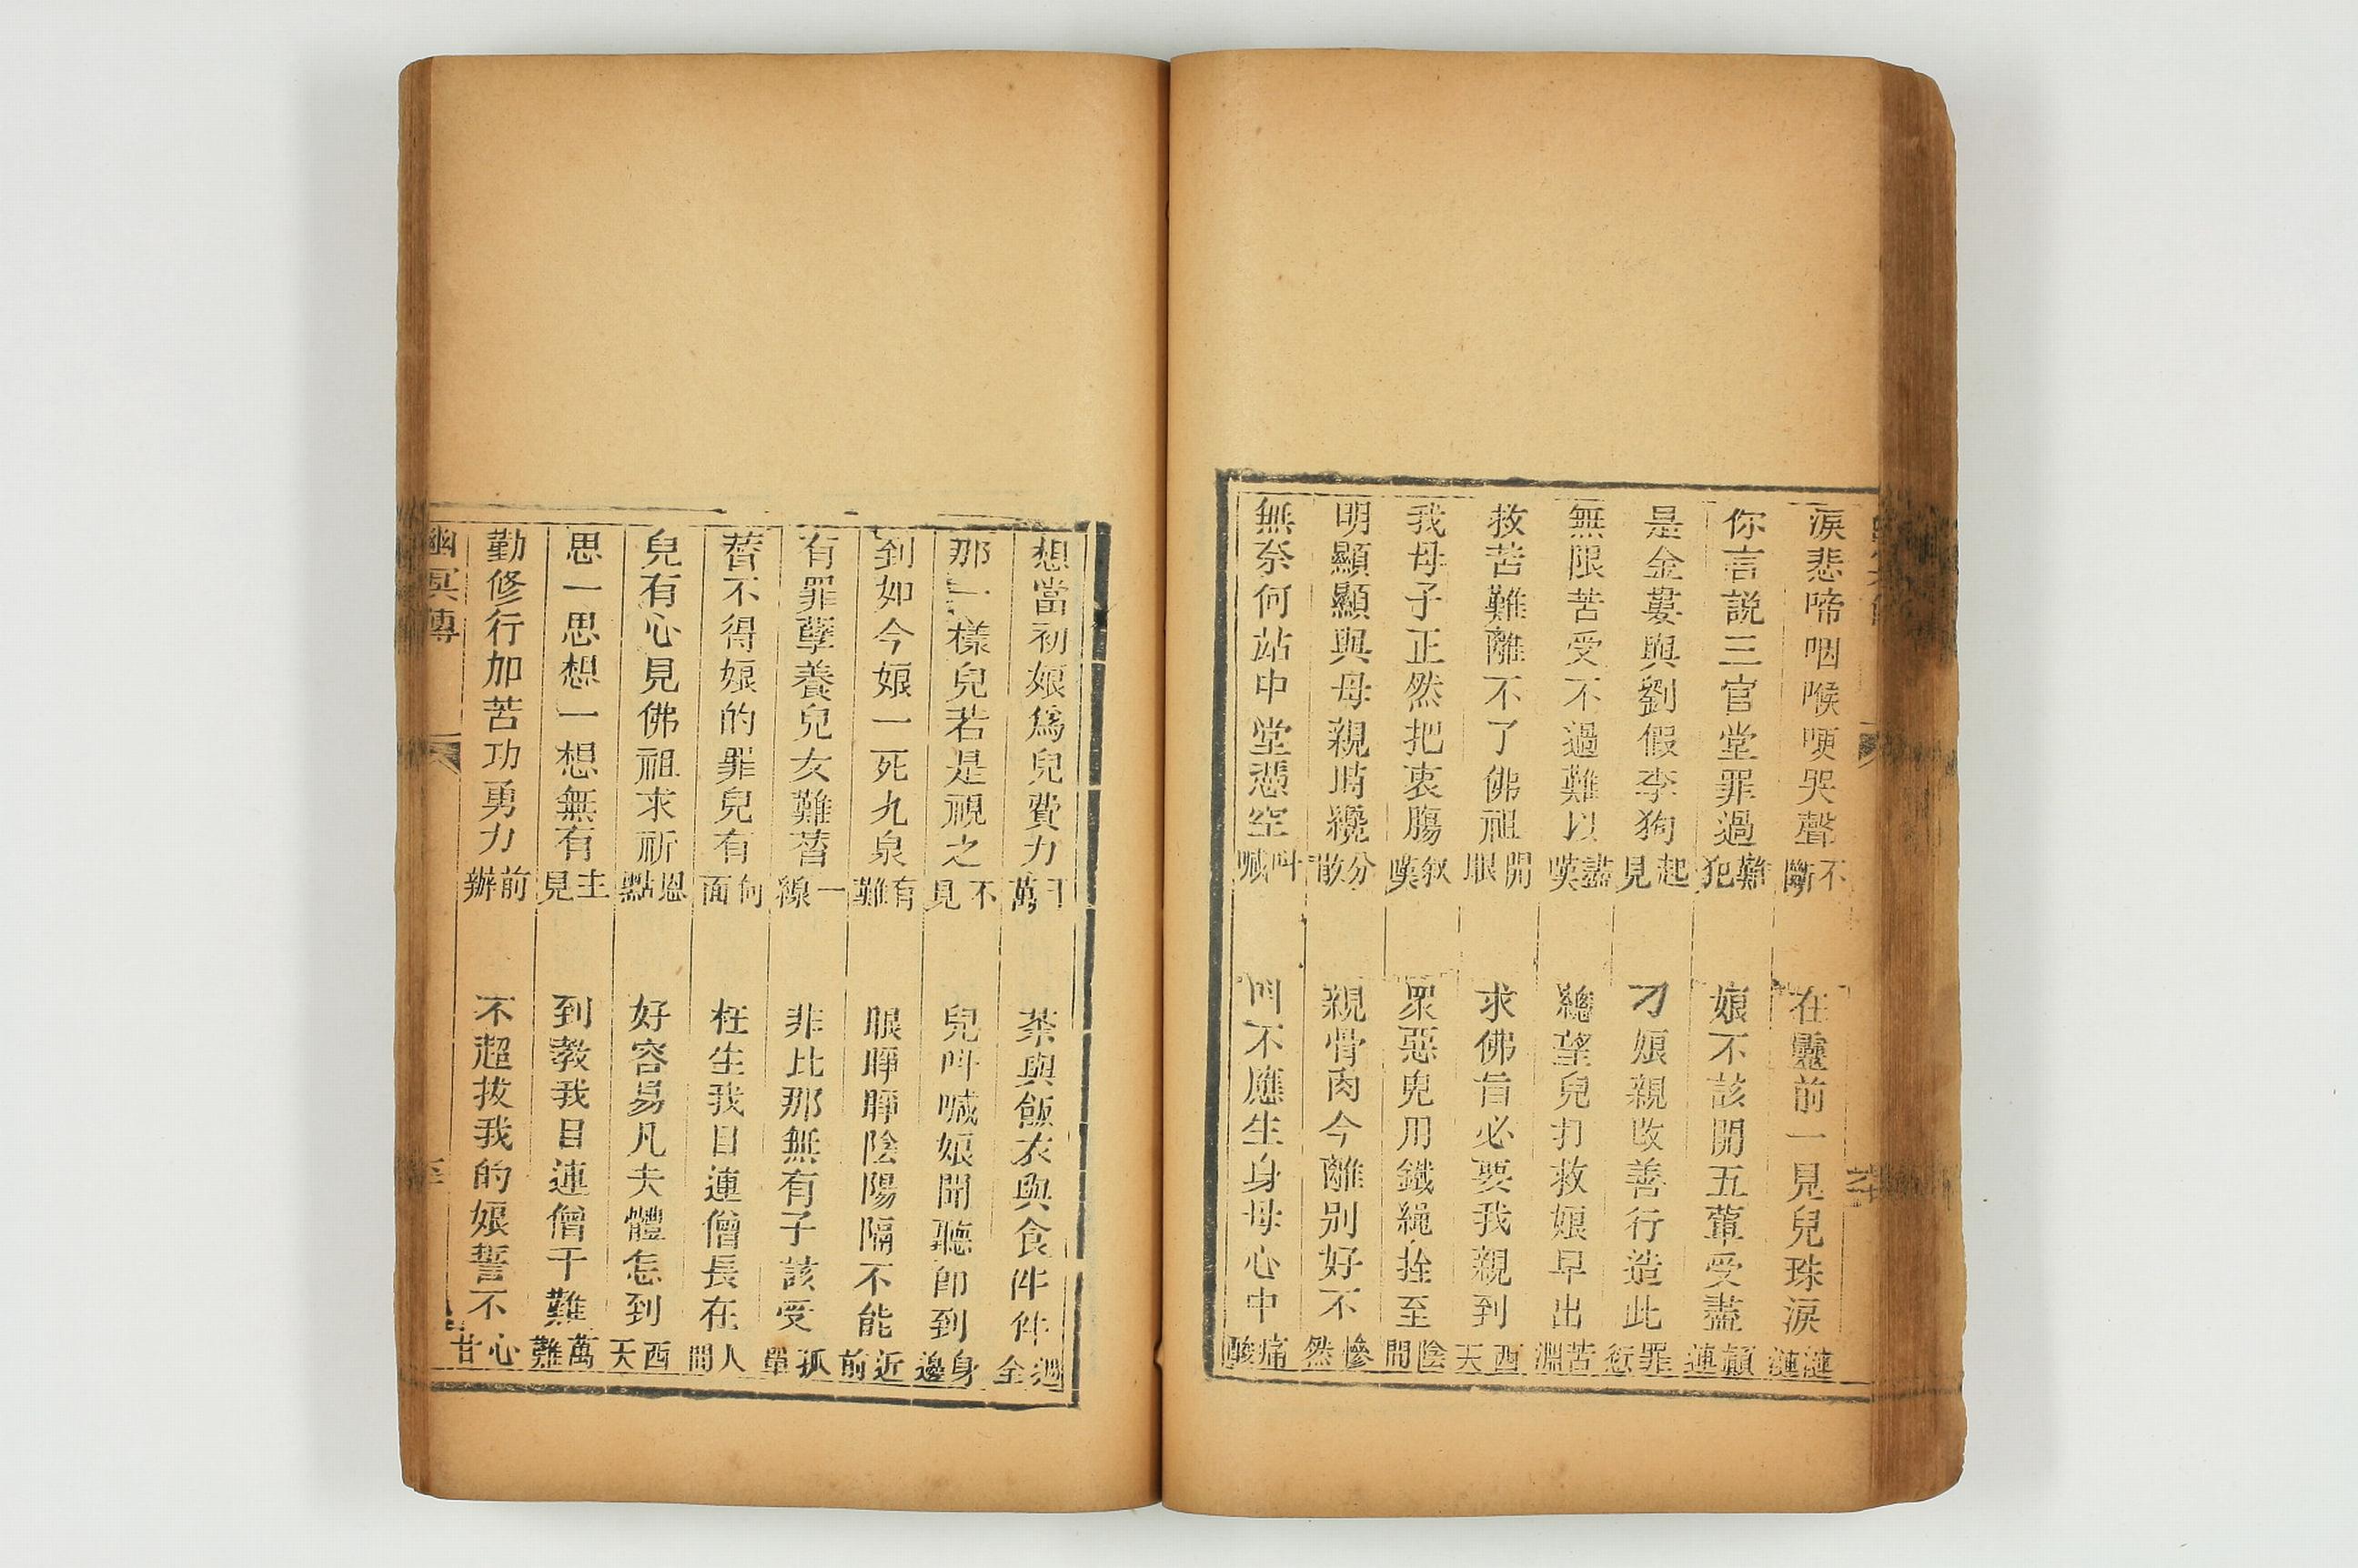 淚悲啼咽喉哽哭聲不斷　在靈前一見兒珠淚漣漣
你言説三官堂罪過難犯　娘不該開五葷受盡顛連
是金蔞與劉假李狗起見　刁娘親改善行造此罪愆
無限苦受不過難以盡嘆　總望兒打救娘早出苦淵
救苦難離不了佛祖開眼　求佛旨必要我親到西天
我母子正然把衷腸叙嘆　眾惡鬼用鐵繩拴至陰間
明顯顯與母親時纔分散　親骨肉今離別好不慘然
無奈何站中堂憑空叫喊　叫不應生身母心中痛酸
想當初娘爲兒費力千萬　茶與飯衣與食件件週全
那一樣兒若是視之不見　兒叫喊娘聞聽即到身邊
到如今娘一死九泉有難　眼睜睜陰陽隔不能近前
有罪孽養兒女難替一線　非比那無有子該受孤單
替不得娘的罪兒有何面　枉生我目連僧長在人間
兒有心見佛祖求祈恩點　好容易凡夫體怎到西天
思一思想一想無有主見　到教我目連僧千難萬難
勤修行加苦功勇力前辦　不超拔我的娘誓不心甘
幽冥傳